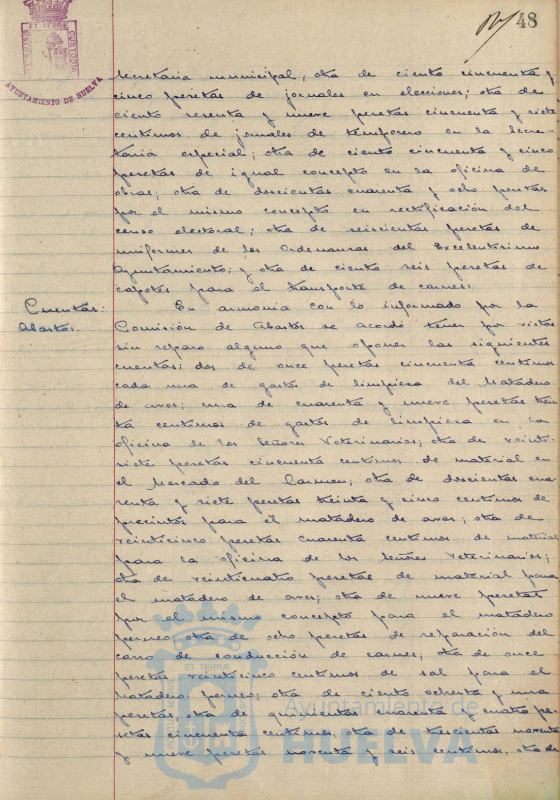 48
AYUNTAMIENTO DE HUELVA
CUSTODIA
secretaria municipal; otra de ciento cincuenta y
cinco pesetas de jornales en elecciones; otra de
ciento sesenta y nueve pesetas cincuenta y siete
centimos de jornales de temporero en la Secre-
taria especial; otra de ciento cincuenta y cinco
pesetas de igual concepto en la oficina de
obras; otra de doscientas cuarenta y ocho pesetas
por el mismo concepto en rectificación del
censo electoral; otra de seiscientas pesetas de
uniformes de los Ordenanzas del Excelentisimo
Ayuntamiento; y otra de ciento seis pesetas de
capotes para el transporte de carnes.
Cuentas:
Abastos.
En armonia con lo informado por la
Comisión de Abastos se acordó tener por vistas
sin reparo alguno que oponer las siguientes
cuentas: dos de once pesetas cincuenta centimos
cada una de gastos de limpieza del Matadero
de aves; una de cuarenta y nueve pesetas trein
ta centimos de gastos de limpieza en la
oficina de los Señores Veterinarios; otra de veinti-
siete pesetas cincuenta centimos de material en
el Mercado del Carmen; otra de doscientas cua
renta y siete pesetas treinta y cinco centimos de
precintos para el matadero de aves; otra de
veinticinco pesetas cuarenta centimos de material
para la oficina de los Señores Veterinarios;
otra de veinticuatro pesetas de material para
el matadero de aves; otra de nueve pesetas
por el mismo concepto para el matadero
porcino; otra de ocho pesetas de reparación del
carro de conducción de carnes; otra de once
pesetas veinticinco centimos de sal para el
matadero porcino; otra de ciento ochenta y una
pesetas, otra de quinientas cuarenta y cuatro pe-
setas cincuenta centimos, otra de trescientas noventa
y nueve pesetas noventa y seis centimos, otra de
ET TERRÆ
Ayuntamiento de
HUELVA